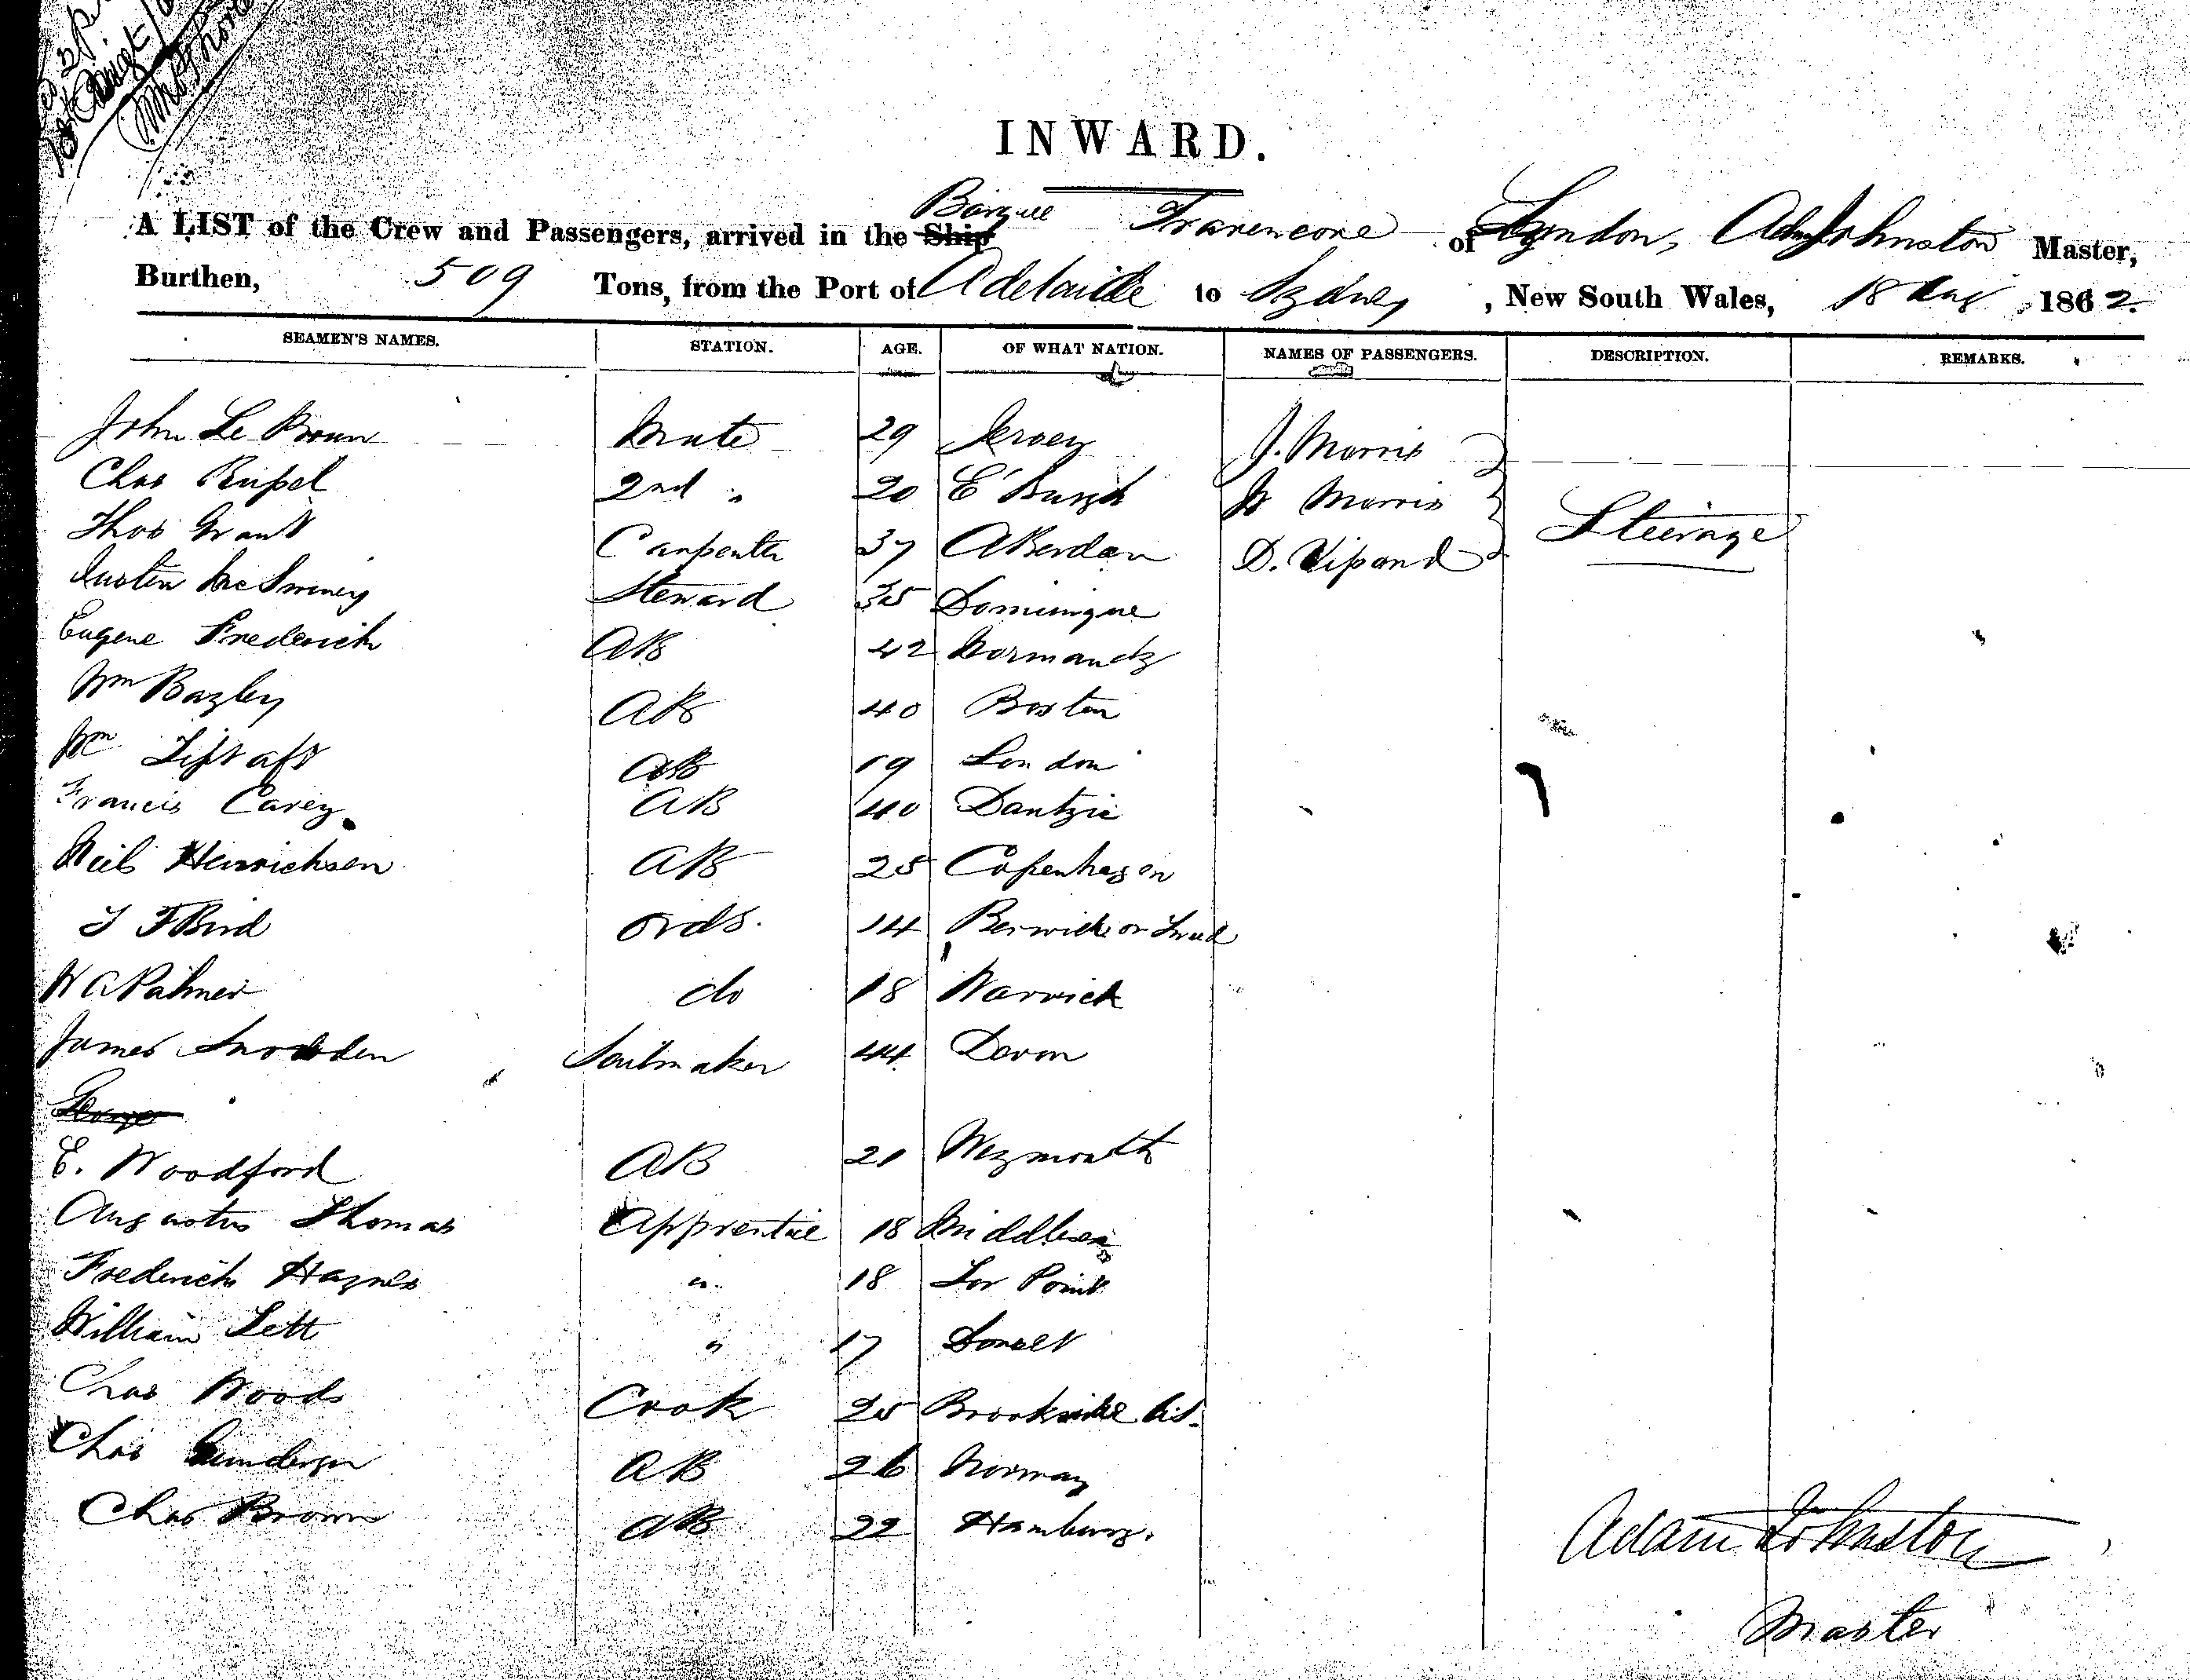 INWARD.
A LIST of the Crew and Passengers, arrived in the Ship Barque Travencore of London, Adam Johnston Master,
Burthen, 509 Tons, from the Port of Adelaide to Sydney, New South Wales, 18 Aug 1862.
SEAMEN'S NAMES. STATION. AGE. OF WHAT NATION. NAMES OF PASSENGERS. DESCRIPTION. REMARKS.
John Le Brun Mate 29 Jersey J. Morris
Chas 2nd " 20 E'Burgh W Morris
Thos Grant Carpenter 37 ABerdeen D. Vipond Steerage
Austin McSwiney Steward 35 Domingue
Eugene Frederich AB 42 Normandy
Wm Bazley AB 40 Boston
Wm AB 19 London
Francis Carey AB 40 Dantzic
Neils Henrichsen AB 25 Copenhagen
T F Bird ords. 14 Berwick on Tweed
W C Palmer do 18 Warwick
James Snowden Sailmaker 44 Devon
George
E. Woodford AB 21 Weymouth
Augustus Thomas Apprentice 18 Middlesex
Frederick Haynes " 18 Tor Point
William Lett " 17 Dorset
Chas Woods Cook 25 Brookville
Chas Gundersen AB 26 Norway
Chas Brown AB 22 Hamburg.
Adam Johnston
Master